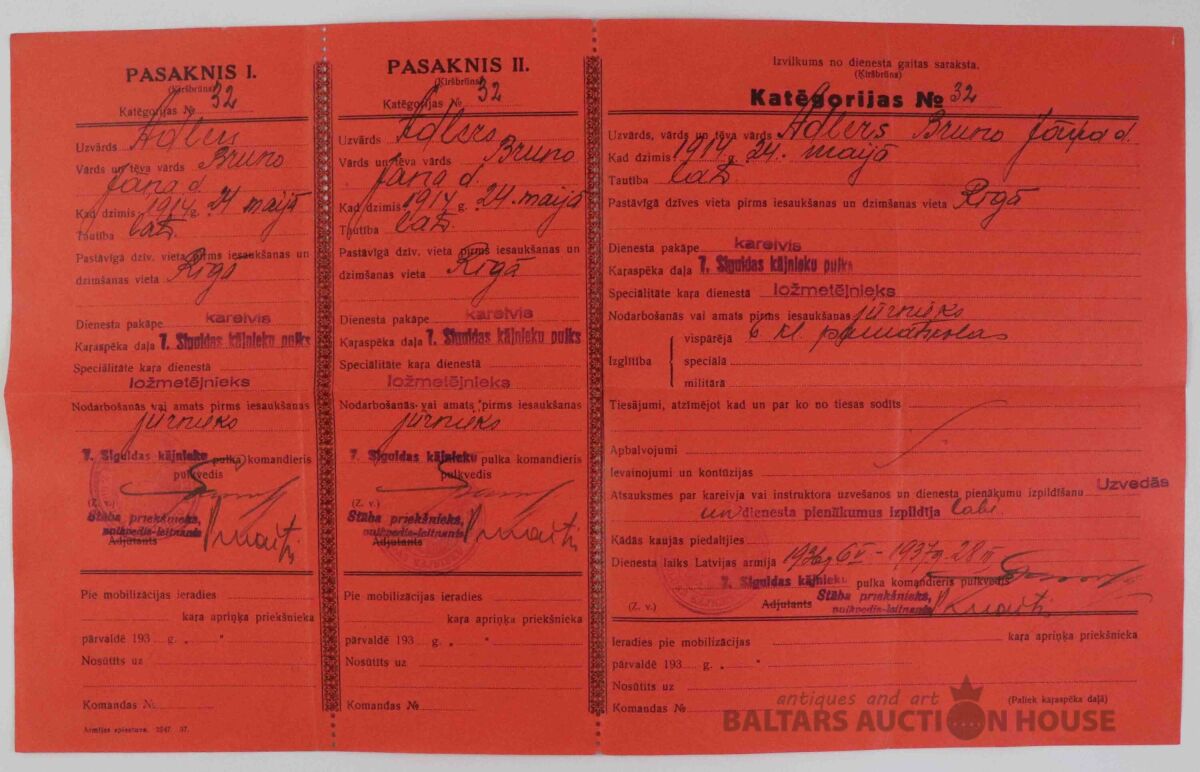 PASAKNIS I.
(Ķiršbrūns)
Katēgorijas № 32
Uzvārds Adlers
Vārds un tēva vārds Bruno
Jāņa d.
Kad dzimis 1914 g. 24 maijā
Tautība latv.
Pastāvīgā dzīv. vieta pirms iesaukšanas un
dzimšanas vieta Rīgā
Dienesta pakāpe kareivis
Kaŗaspēka daļa 7. Siguldas kājnieku pulks
Speciālitāte kaŗa dienestā
ložmetējnieks
Nodarbošanās vai amats pirms iesaukšanas
jūrnieks
7. Siguldas kājnieku pulka komandieris
pulkvedis
(Z. v.)
Štāba priekšnieks,
pulkvedis-leitnants
Adjutants
Pie mobilizācijas ieradies
kaŗa apriņķa priekšnieka
pārvaldē 193 g. „ "
Nosūtīts uz
Komandas №
Armijas spiestuve. 2247 37.
PASAKNIS II.
(Ķiršbrūns)
Katēgorijas № 32
Uzvārds Adlers
Vārds un tēva vārds Bruno
Jāņa d.
Kad dzimis 1914 g. 24. maijā
Tautība latv.
Pastāvīgā dzīv. vieta pirms iesaukšanas un
dzimšanas vieta Rīgā
Dienesta pakāpe kareivis
Kaŗaspēka daļa 7. Siguldas kājnieku pulks
Speciālitāte kaŗa dienestā
ložmetējnieks
Nodarbošanās vai amats pirms iesaukšanas
jūrnieks
7. Siguldas kājnieku pulka komandieris
pulkvedis
(Z. v.)
Štāba priekšnieks,
pulkvedis-leitnants
Adjutants
Pie mobilizācijas ieradies
kaŗa apriņķa priekšnieka
pārvaldē 193 g. „ "
Nosūtīts uz
Komandas №
Izvilkums no dienesta gaitas saraksta.
(Ķiršbrūns)
Katēgorijas № 32
Uzvārds, vārds un tēva vārds Adlers Bruno Jāņa d.
Kad dzimis 1914 g. 24. maijā
Tautība latv.
Pastāvīgā dzīves vieta pirms iesaukšanas un dzimšanas vieta Rīgā
Dienesta pakāpe kareivis
Kaŗaspēka daļa 7. Siguldas kājnieku pulks
Speciālitāte kaŗa dienestā ložmetējnieks
Nodarbošanās vai amats pirms iesaukšanas jūrnieks
Izglītība
vispārēja 6 kl. pamatskolas
speciāla
militārā
Tiesājumi, atzīmējot kad un par ko no tiesas sodīts
Apbalvojumi
Ievainojumi un kontūzijas
Atsauksmes par kareivja vai instruktora uzvešanos un dienesta pienākumu izpildīšanu Uzvedās
un dienesta pienākumus izpildīja labi
Kādās kaujās piedalījies
Dienesta laiks Latvijas armijā 1936g 6 IV - 1937g. 28 III
7. Siguldas kājnieku pulka komandieris pulkvedis
(Z. v.) Adjutants Štāba priekšnieks,
pulkvedis-leitnants
Ieradies pie mobilizācijas kaŗa apriņķa priekšnieka
pārvaldē 193 g. „ "
Nosūtīts uz
Komandas № (Paliek kaŗaspēka daļā)
antiques and art
BALTARS AUCTION HOUSE